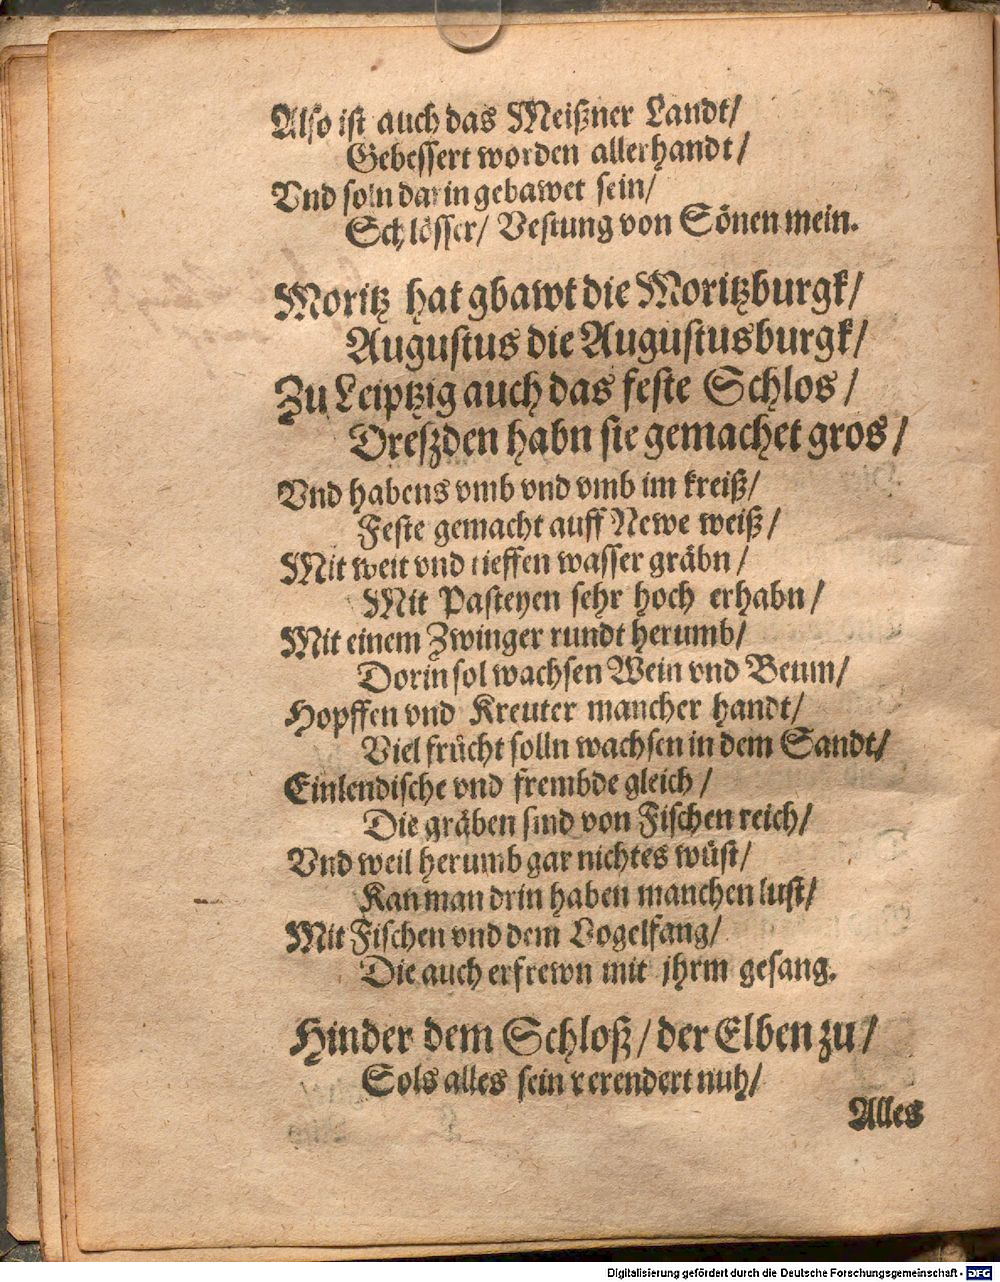 Also ist auch das Meißner Landt/
Gebessert worden allerhandt/
Vnd soln darin gebawet sein/
Schlösser/ Vestung von Sönen mein.
Moritz hat gbawt die Moritzburgk/
Augustus die Augustusburgk/
Zu Leiptzig auch das feste Schlos/
Dreszden habn sie gemachet gros/
Vnd habens vmb vnd vmb im kreiß/
Feste gemacht auff Newe weiß/
Mit weit vnd tieffen wasser gräbn/
Mit Pasteyen sehr hoch erhabn/
Mit einem Zwinger rundt herumb/
Dorin sol wachsen Wein vnd Beum/
Hopffen vnd Kreuter mancher handt/
Viel frücht solln wachsen in dem Sandt/
Einlendische vnd frembde gleich/
Die gräben sind von Fischen reich/
Vnd weil herumb gar nichtes wüst/
Kan man drin haben manchen lust/
Mit Fischen vnd dem Vogelfang/
Die auch erfrewn mit jhrm gesang.
Hinder dem Schloß/ der Elben zu/
Sols alles sein verendert nuh/
Alles
Digitalisierung gefördert durch die Deutsche Forschungsgemeinschaft - DFG